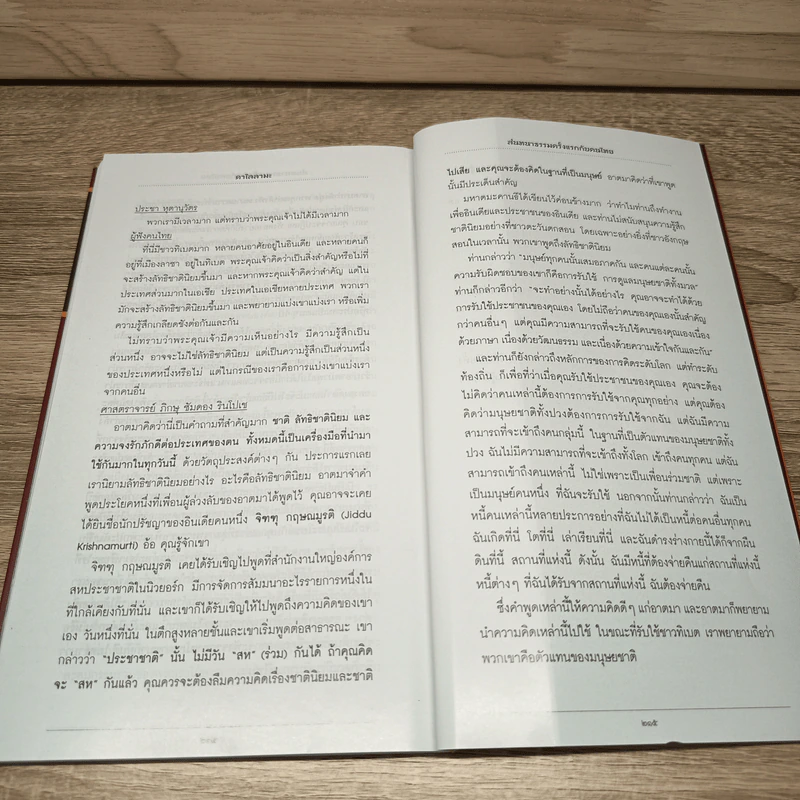 ดาไลลามะ
ประชา หุตานุวัตร
พวกเรามีเวลามาก แต่ทราบว่าพระคุณเจ้าไม่ได้มีเวลามาก
ผู้ฟังคนไทย
ที่นี่มีชาวทิเบตมาก หลายคนอาศัยอยู่ในอินเดีย และหลายคนก็
อยู่ที่เมืองลาซา อยู่ในทิเบต พระคุณเจ้าคิดว่าเป็นสิ่งสำคัญหรือไม่ที่
จะสร้างลัทธิชาตินิยมขึ้นมา และหากพระคุณเจ้าคิดว่าสำคัญ แต่ใน
ประเทศส่วนมากในเอเชีย ประเทศในเอเชียหลายประเทศ พวกเรา
มักจะสร้างลัทธิชาตินิยมขึ้นมา และพยายามแบ่งเขาแบ่งเรา หรือเพิ่ม
ความรู้สึกเกลียดชังต่อกันและกัน
ไม่ทราบว่าพระคุณเจ้ามีความเห็นอย่างไร มีความรู้สึกเป็น
ส่วนหนึ่ง อาจจะไม่ใช่ลัทธิชาตินิยม แต่เป็นความรู้สึกเป็นส่วนหนึ่ง
ของประเทศหนึ่งหรือไม่ แต่ในกรณีของเราคือการแบ่งเขาแบ่งเรา
จากคนอื่น
ศาสตราจารย์ ภิกษุ ซัมดอง รินโปเช
อาตมาคิดว่านี่เป็นคำถามที่สำคัญมาก ชาติ ลัทธิชาตินิยม และ
ความจงรักภักดีต่อประเทศของตน ทั้งหมดนี้เป็นเครื่องมือที่นำมา
ใช้กันมากในทุกวันนี้ ด้วยวัตถุประสงค์ต่างๆ กัน ประการแรกเลย
เรานิยามลัทธิชาตินิยมอย่างไร อะไรคือลัทธิชาตินิยม อาตมาจำคำ
พูดประโยคหนึ่งที่เพื่อนผู้ล่วงลับของอาตมาได้พูดไว้ คุณอาจจะเคย
ได้ยินชื่อนักปรัชญาของอินเดียคนหนึ่ง จิฑฑุ กฤษณมูรติ (Jiddu
Krishnamurti) อ้อ คุณรู้จักเขา
จิฑฑุ กฤษณมูรติ เคยได้รับเชิญไปพูดที่สำนักงานใหญ่องค์การ
สหประชาชาติในนิวยอร์ก มีการจัดการสัมมนาอะไรรายการหนึ่งใน
ที่ใกล้เคียงกับที่นั่น และเขาก็ได้รับเชิญให้ไปพูดถึงความคิดของเขา
เอง วันหนึ่งที่นั่น ในตึกสูงหลายชั้นและเขาเริ่มพูดต่อสาธารณะ เขา
กล่าวว่า "ประชาชาติ" นั้น ไม่มีวัน "สห" (ร่วม) กันได้ ถ้าคุณคิด
จะ "สห" กันแล้ว คุณควรจะต้องลืมความคิดเรื่องชาตินิยมและชาติ
สนทนาธรรมครั้งแรกกับคนไทย
ไปเสีย และคุณจะต้องคิดในฐานที่เป็นมนุษย์ อาตมาคิดว่าที่เขาพูด
นั้นมีประเด็นสำคัญ
มหาตมะคานธีได้เขียนไว้ค่อนข้างมาก ว่าทำไมท่านถึงทำงาน
เพื่ออินเดียและประชาชนของอินเดีย และท่านไม่สนับสนุนความรู้สึก
ชาตินิยมอย่างที่ชาวตะวันตกสอน โดยเฉพาะอย่างยิ่งที่ชาวอังกฤษ
สอนในเวลานั้น พวกเขาพูดถึงลัทธิชาตินิยม
ท่านกล่าวว่า "มนุษย์ทุกคนนั้นเสมอภาคกัน และคนแต่ละคนนั้น
ความรับผิดชอบของเขาก็คือการรับใช้ การดูแลมนุษยชาติทั้งมวล"
ท่านก็กล่าวอีกว่า "จะทำอย่างนั้นได้อย่างไร คุณอาจจะทำได้ด้วย
การรับใช้ประชาชนของคุณเอง โดยไม่ถือว่าคนของคุณเองนั้นสำคัญ
กว่าคนอื่นๆ แต่คุณมีความสามารถที่จะรับใช้คนของคุณเองเนื่อง
ด้วยภาษา เนื่องด้วยวัฒนธรรม และเนื่องด้วยความเข้าใจกันและกัน"
และท่านก็ยังกล่าวถึงหลักการของการคิดระดับโลก แต่ทำระดับ
ท้องถิ่น ก็เพื่อที่ว่าเมื่อคุณรับใช้ประชาชนของคุณเอง คุณจะต้อง
ไม่คิดว่าคนเหล่านี้ต้องการการรับใช้จากคุณทุกอย่าง แต่คุณต้อง
คิดว่ามนุษยชาติทั้งปวงต้องการการรับใช้จากฉัน แต่ฉันมีความ
สามารถที่จะเข้าถึงคนกลุ่มนี้ ในฐานที่เป็นตัวแทนของมนุษยชาติทั้ง
ปวง ฉันไม่มีความสามารถที่จะเข้าถึงทั้งโลก เข้าถึงคนทุกคน แต่ฉัน
สามารถเข้าถึงคนเหล่านี้ ไม่ใช่เพราะเป็นเพื่อนร่วมชาติ แต่เพราะ
เป็นมนุษย์คนหนึ่ง ที่ฉันจะรับใช้ นอกจากนั้นท่านกล่าวว่า ฉันเป็น
หนี้คนเหล่านี้หลายประการอย่างที่ฉันไม่ได้เป็นหนี้ต่อคนอื่นทุกคน
ฉันเกิดที่นี่ โตที่นี่ เล่าเรียนที่นี่ และฉันดำรงร่างกายนี้ได้ก็จากผืน
ดินที่นี่ สถานที่แห่งนี้ ดังนั้น ฉันมีหนี้ที่ต้องจ่ายคืนแก่สถานที่แห่งนี้
หนี้ต่างๆ ที่ฉันได้รับจากสถานที่แห่งนี้ ฉันต้องจ่ายคืน
ซึ่งคำพูดเหล่านี้ให้ความคิดดีๆ แก่อาตมา และอาตมาก็พยายาม
นำความคิดเหล่านี้ไปใช้ ในขณะที่รับใช้ชาวทิเบต เราพยายามถือว่า
พวกเขาคือตัวแทนของมนุษยชาติ
๒๑๕